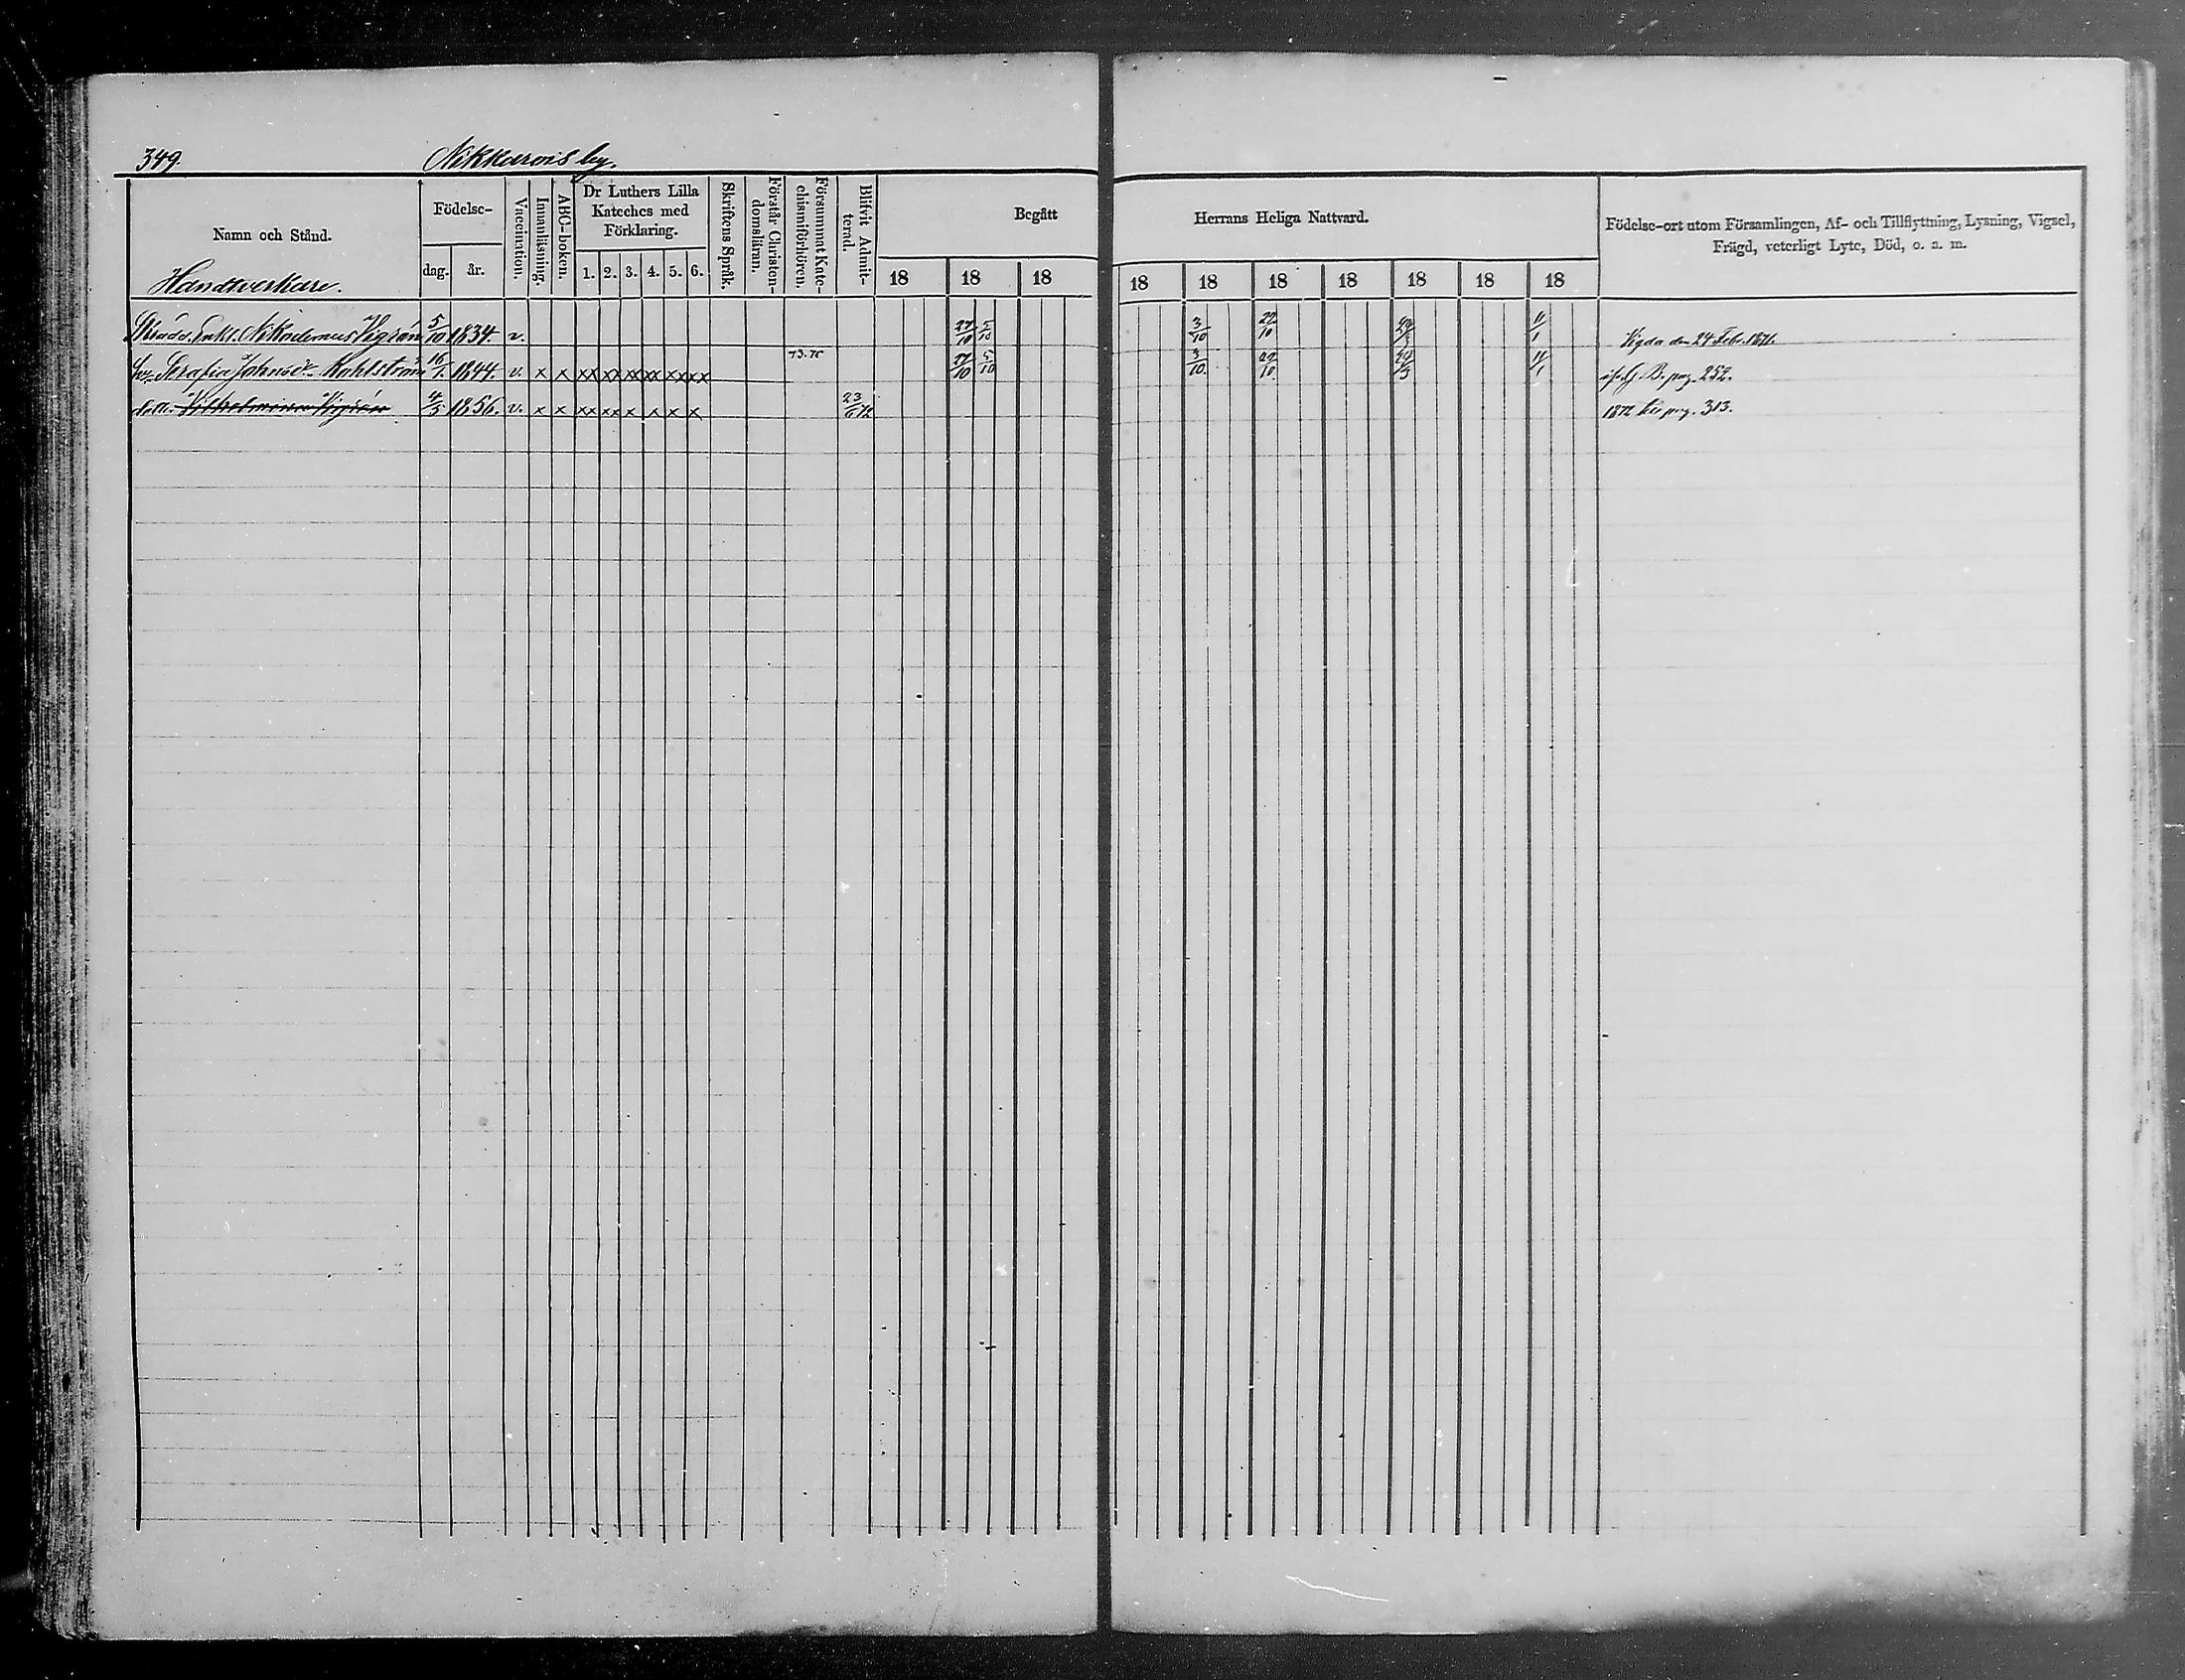 349. Nikkarois by.
Namn och Stånd.
Handtverkare.
Födelse-
dag. år.
Vaccination.
Innanläsning.
ABC-boken.
Dr Luthers Lilla
Kateches med
Förklaring.
1. 2. 3. 4. 5. 6.
Skriftens Språk.
Förstår Christen-
domsläran.
Försummat Kate-
chismiförhören.
Blifvit Admit-
terad.
Begått
18 18 18
Herrans Heliga Nattvard.
18 18 18 18 18 18 18
Födelse-ort utom Församlingen, Af- och Tillflyttning, Lysning, Vigsel,
Frägd, veterligt Lyte, Död, o. a. m.
Skrädd. Enkl. Nikodemus Vigrén 5/10 1834. v. 27/10 5/10 3/10 22/10 11/1 Vigda den 24 Febr. 1871.
Serafia Johansdr Kahlström 16/1. 1844. v. x x xx xx xx xx xx xx 73.75 27/10 5/10 3/10. 22/10. 11/1 B. pag. 252.
dott. Vilhelmina Vigrén 4/5 1856. v. x x xx xx x x x x 23/6 72 1872 pag. 313.